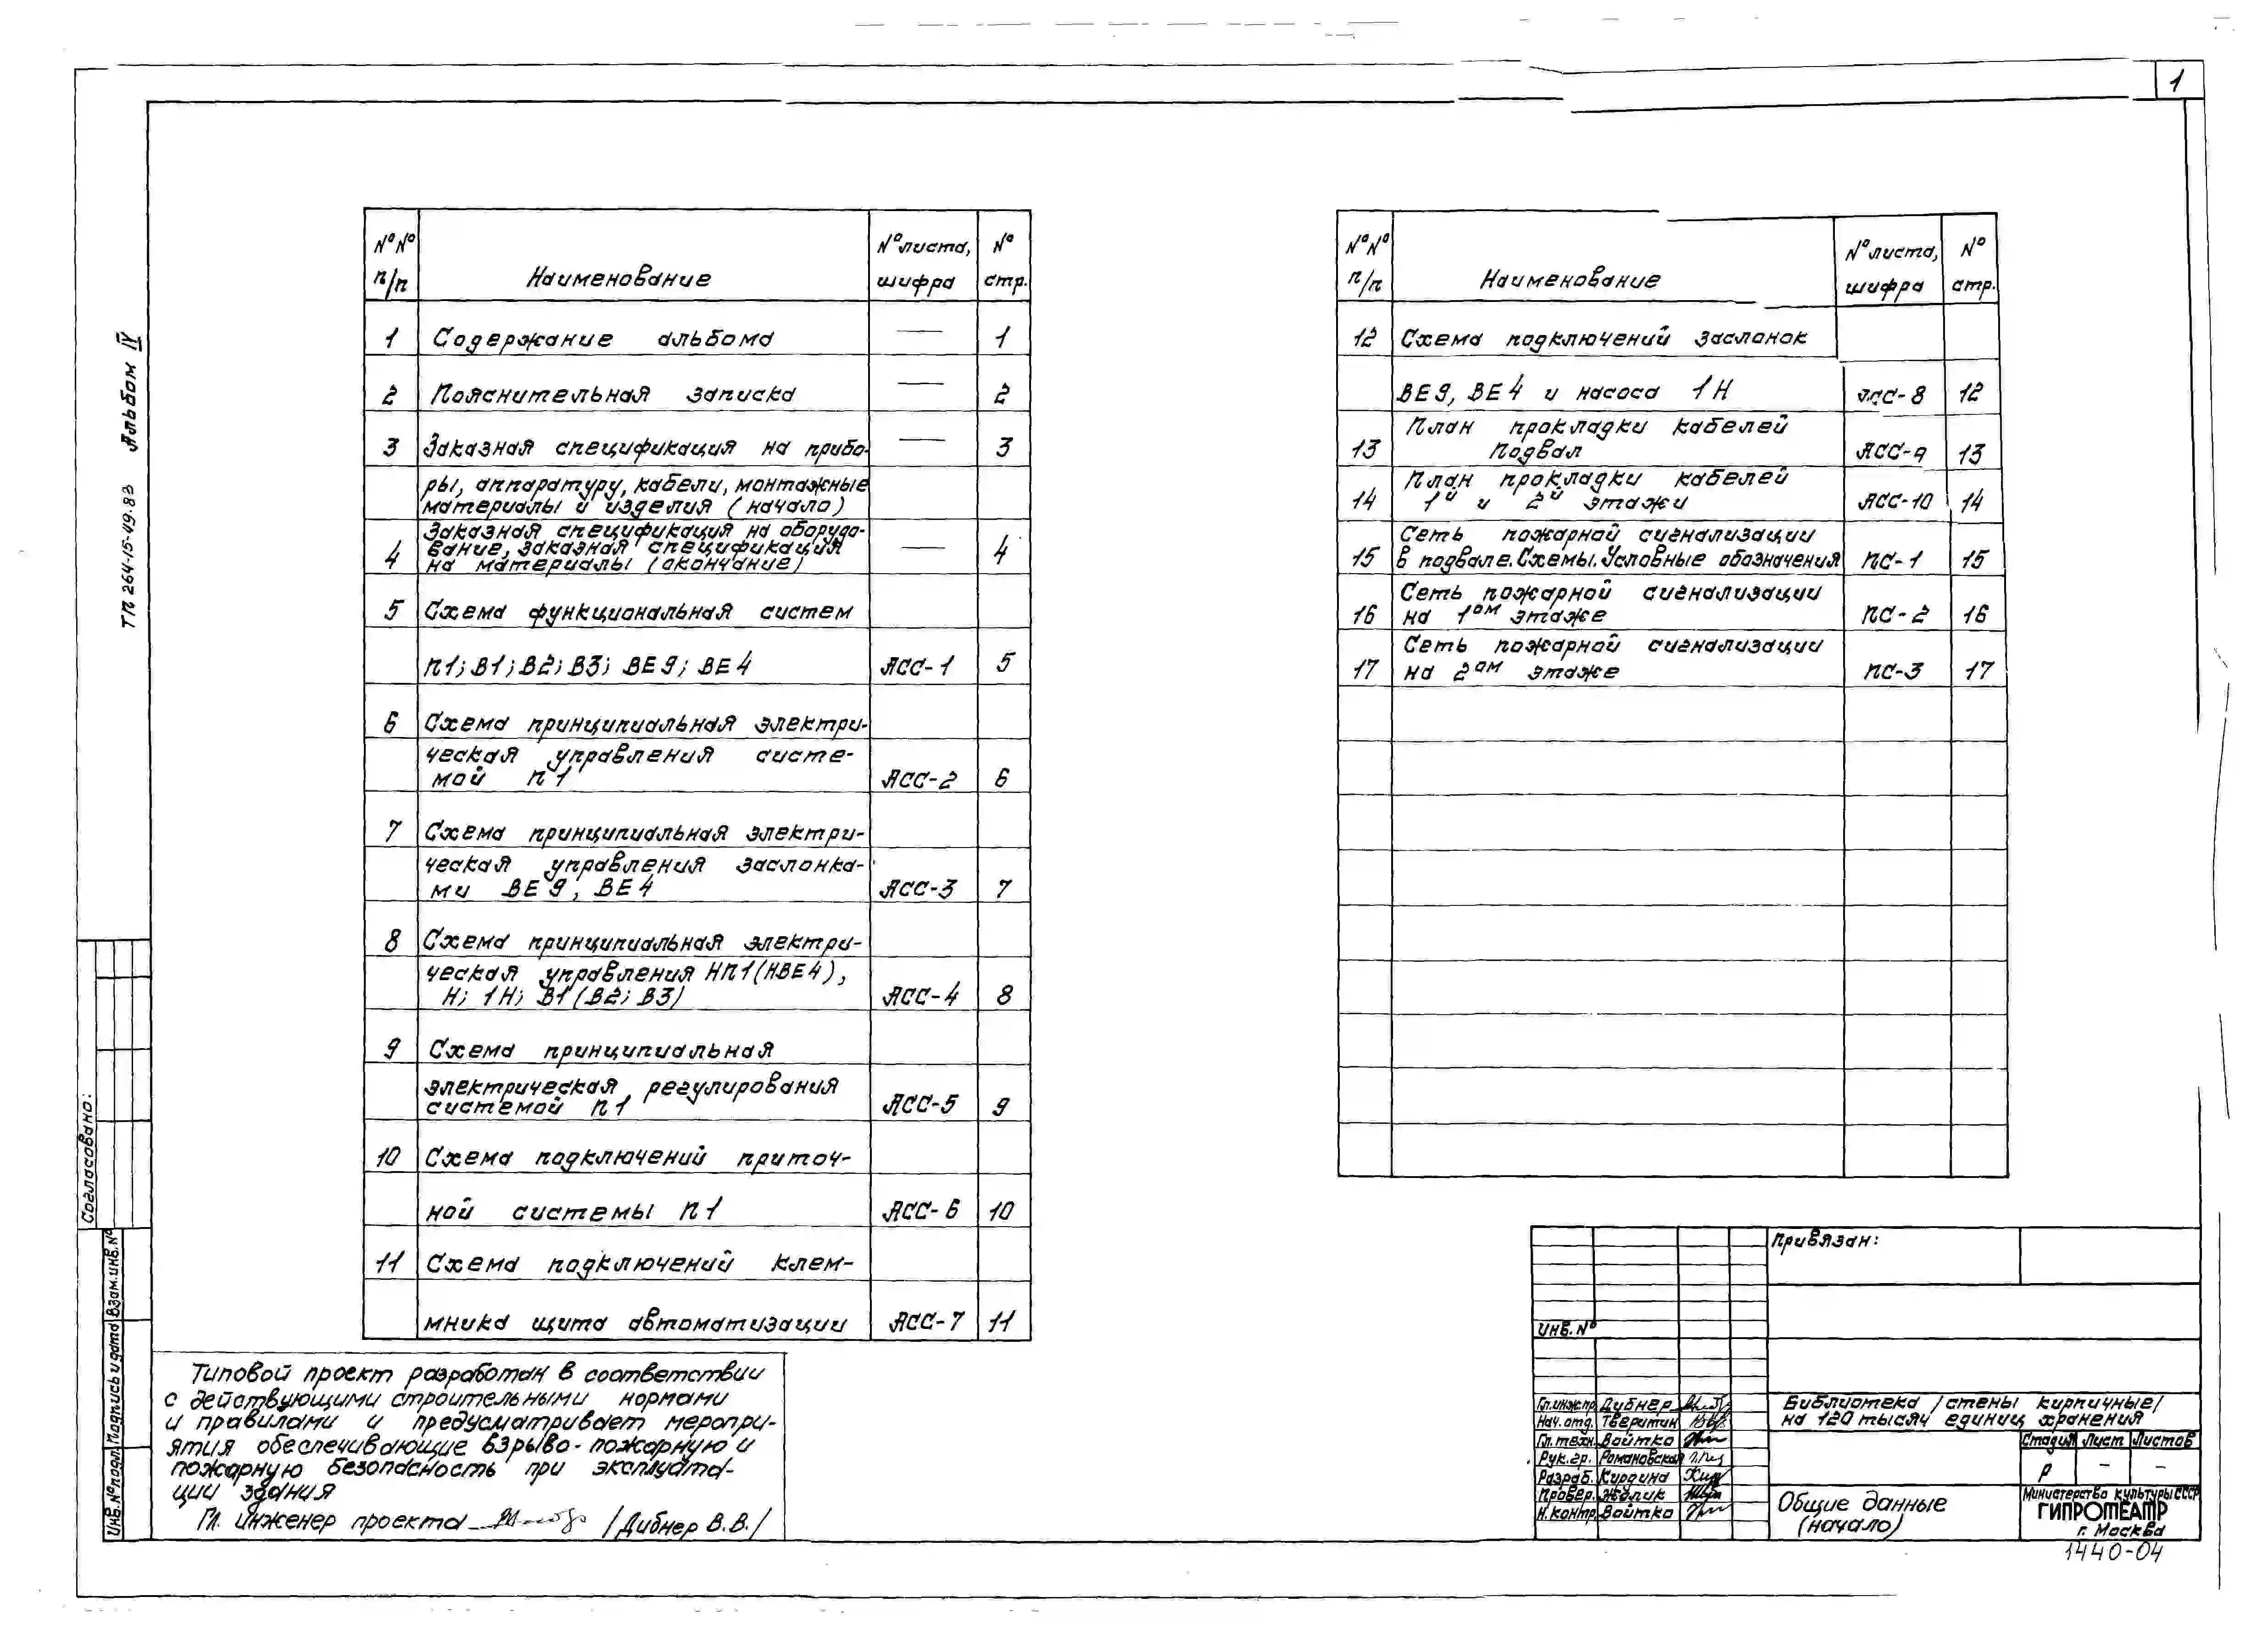 1
ТП 264-15-49.83 Альбом IV
№№ п/п Наименование № листа, шифра № стр.
1 Содержание альбома — 1
2 Пояснительная записка — 2
3 Заказная спецификация на прибо- — 3
ры, аппаратуру, кабели, монтажные
материалы и изделия (начало)
Заказная спецификация на оборудо-
4 вание, заказная спецификация — 4
на материалы (окончание)
5 Схема функциональная систем
П1; В1; В2; В3; ВЕ9; ВЕ4 АСС-1 5
6 Схема принципиальная электри-
ческая управления систе-
мой П1 АСС-2 6
7 Схема принципиальная электри-
ческая управления заслонка-
ми ВЕ9, ВЕ4 АСС-3 7
8 Схема принципиальная электри-
ческая управления НП1(НВЕ4),
Н; 1Н; В1(В2; В3) АСС-4 8
9 Схема принципиальная
электрическая регулирования
системой П1 АСС-5 9
10 Схема подключений приточ-
ной системы П1 АСС-6 10
11 Схема подключений клем-
мника щита автоматизации АСС-7 11
№№ п/п Наименование № листа, шифра № стр.
12 Схема подключений заслонок
ВЕ9, ВЕ4 и насоса 1Н АСС-8 12
План прокладки кабелей
13 Подвал АСС-9 13
План прокладки кабелей
14 1й и 2й этажи АСС-10 14
Сеть пожарной сигнализации
15 в подвале. Схемы. Условные обозначения ПС-1 15
Сеть пожарной сигнализации
16 на 1ом этаже ПС-2 16
Сеть пожарной сигнализации
17 на 2ом этаже ПС-3 17
Согласовано:
Инв.№подл. Подпись и дата Взам.инв.№
Типовой проект разработан в соответствии
с действующими строительными нормами
и правилами и предусматривает меропри-
ятия обеспечивающие взрыво-пожарную и
пожарную безопасность при эксплуата-
ции здания
Гл. инженер проекта /Дибнер В.В./
Привязан:
Инв.№
Гл.инж.пр. Дибнер
Нач.отд. Тверитин
Гл.техн. Войтко
Рук.гр. Романовская
Разраб. Курдина
Провер. Жулик
Н.контр. Войтко
Библиотека /стены кирпичные/
на 120 тысяч единиц хранения
Стадия Лист Листов
Р – –
Общие данные
(начало)
Министерство культуры СССР
ГИПРОТЕАТР
г. Москва
1440-04